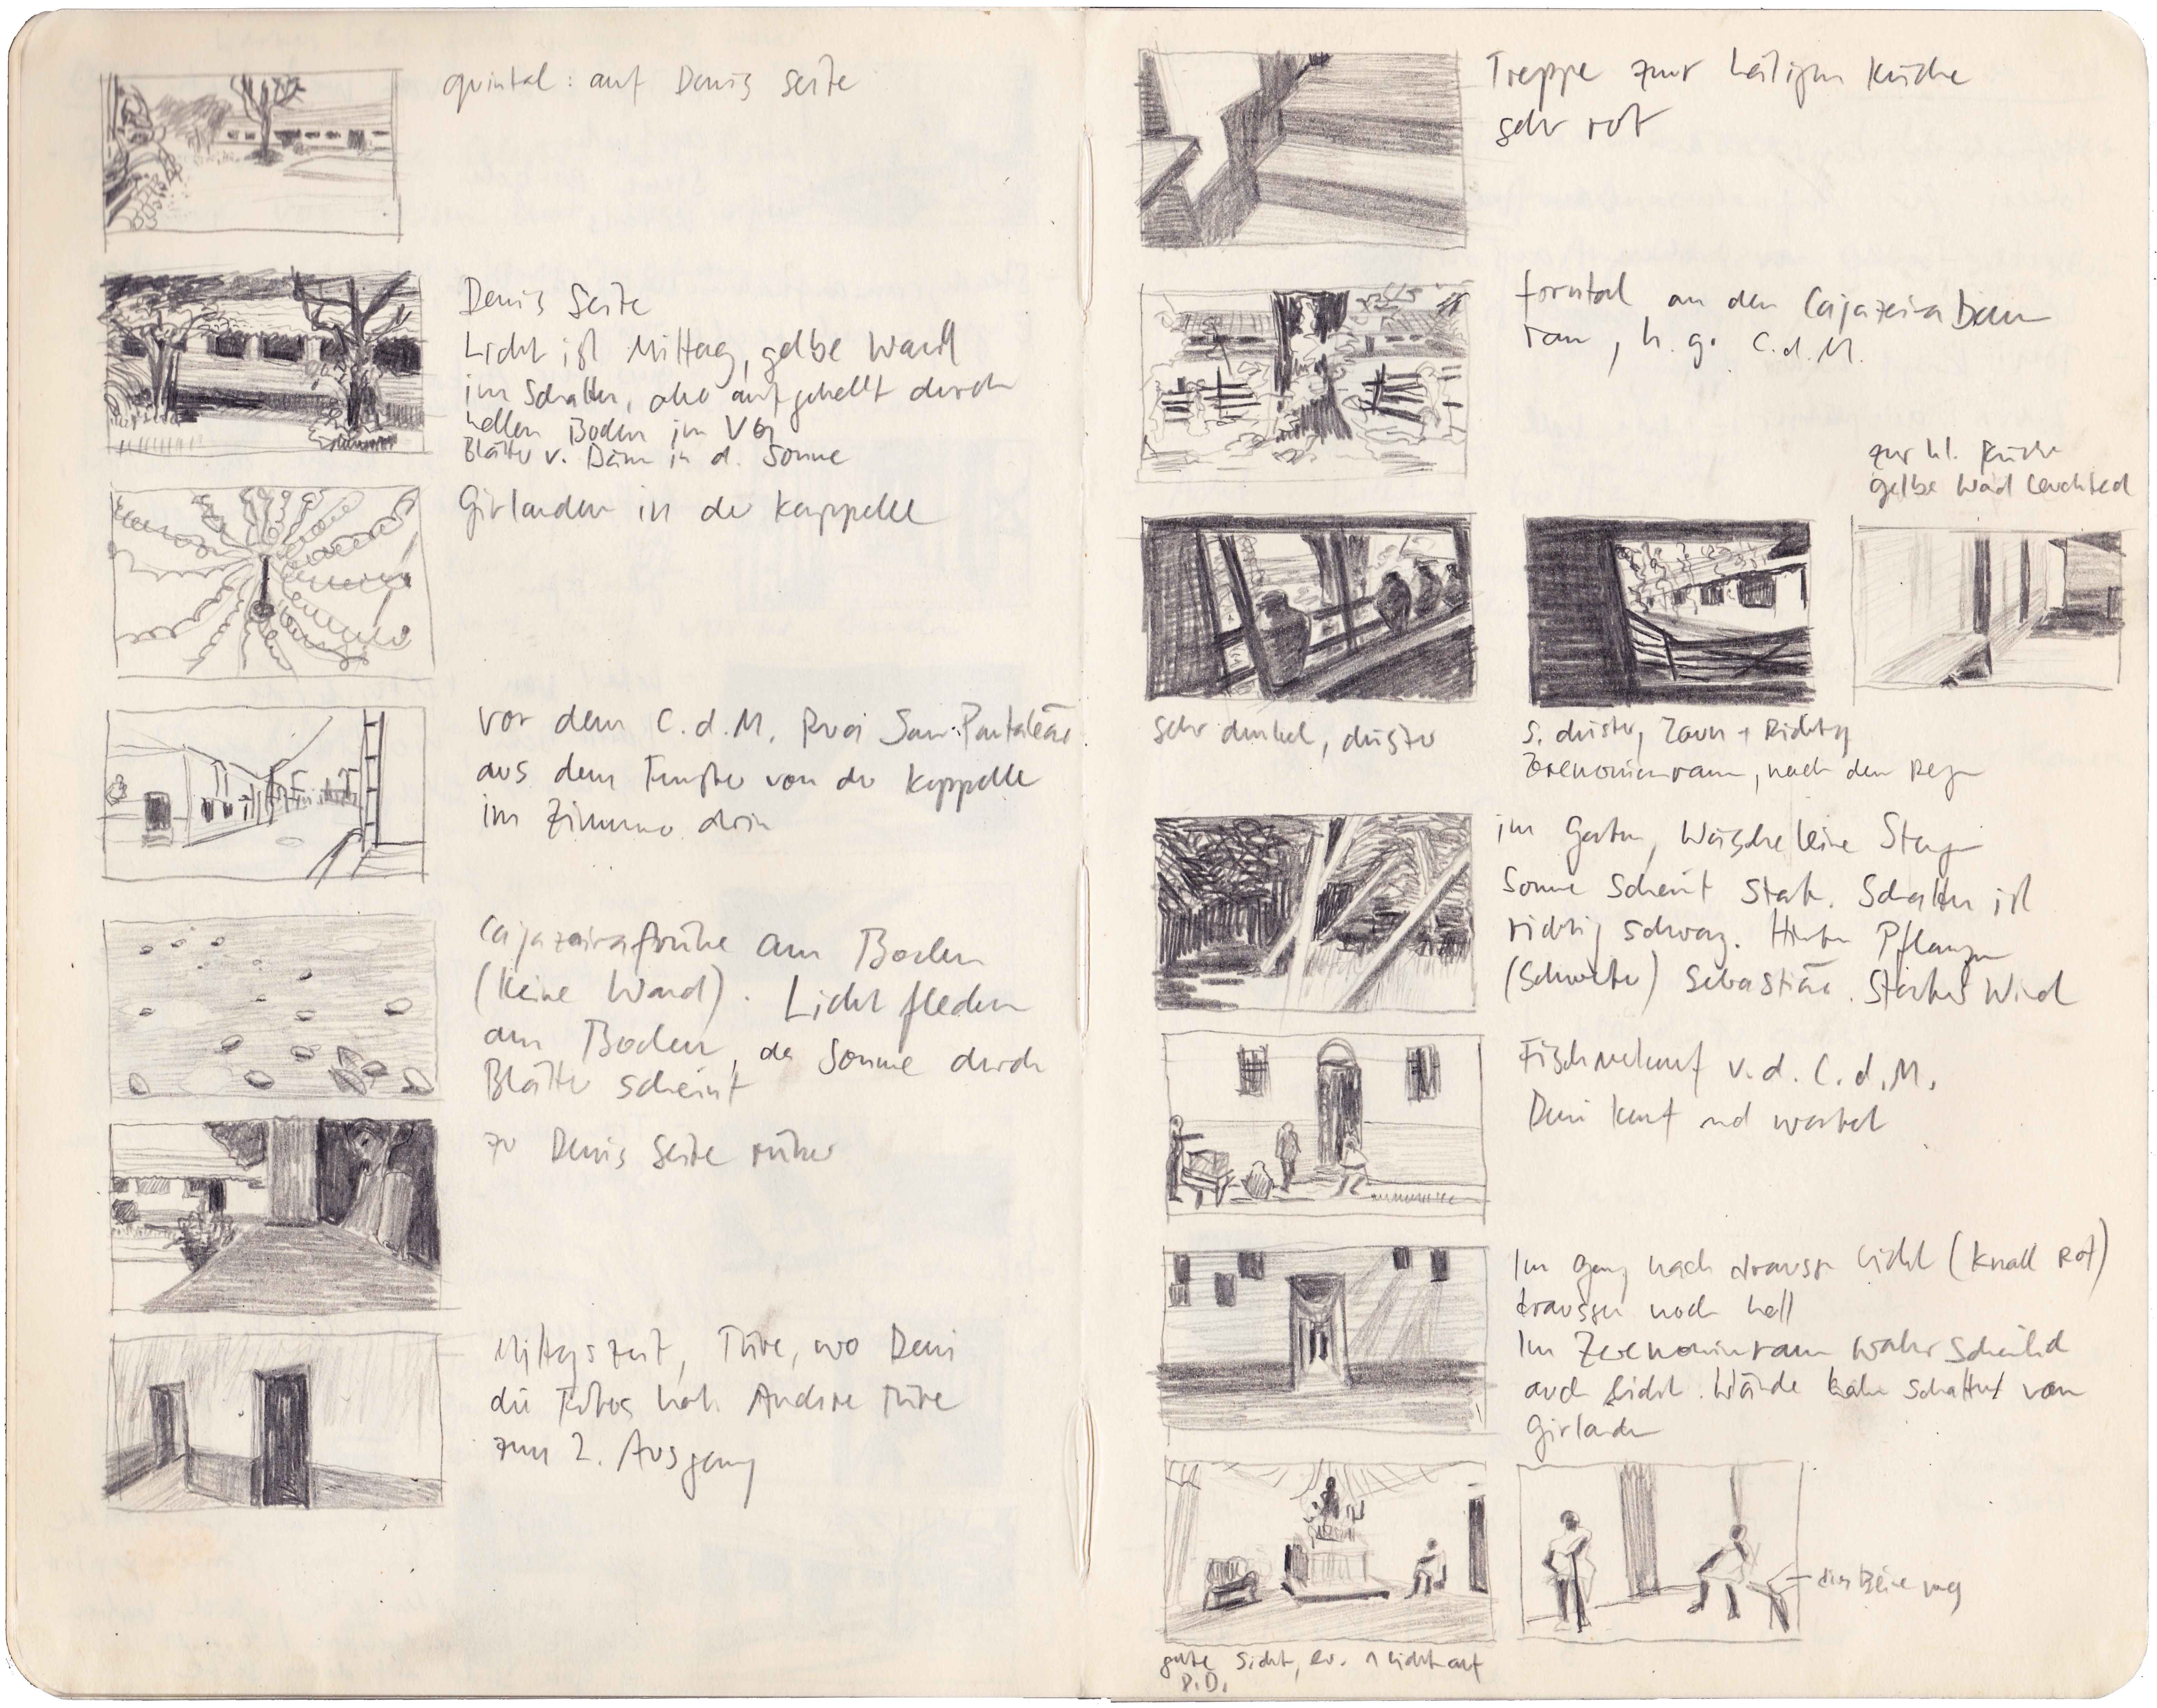 quintal: auf Denis Seite
Denis Seite
Licht ist Mittag, gelbe Wand
im Schatten, also aufgehellt durch
hellen Boden im VGr
Blätter v. Bäum in d. Sonne
Girlanden in der Kappelle
vor dem C.d.M. Rua San
aus dem Fenster von der Kappelle
im Zimmer drin
Cajazeirafrüche am Boden
(keine Wand). Lichtflecken
am Boden, da Sonne durch
Blätter scheint
zu Denis Seite rüber
Mittagszeit, Türe, wo Deni
die Fotos hat. Andere Türe
zum 2. Ausgang
Treppe zur heiligen Küche
sehr rot
frontal an den Cajazeira Baum
ran, h. g. C.d.M.
zur hl. Küche
gelbe Wand leuchtend
sehr dunkel, düster
s. düster, Zaun + Richtg
Zeremonienraum, nach dem Regen
im Garten, Wäscheleine Stangen
Sonne scheint stark. Schatten ist
richtig schwarz. Hinten Pflanzen
Sebastião. Starker Wind
Fischverkauf v.d. C.d.M.
Deni kauft und wartet
Im Gang nach draussen Licht (Knall Rot)
draussen noch hell
Im Zeremonienraum wahrscheinlich
auch Licht. Wände haben Schatten von
Girlanden
gute Sicht, ev. 1 Licht auf
P.D.
weg